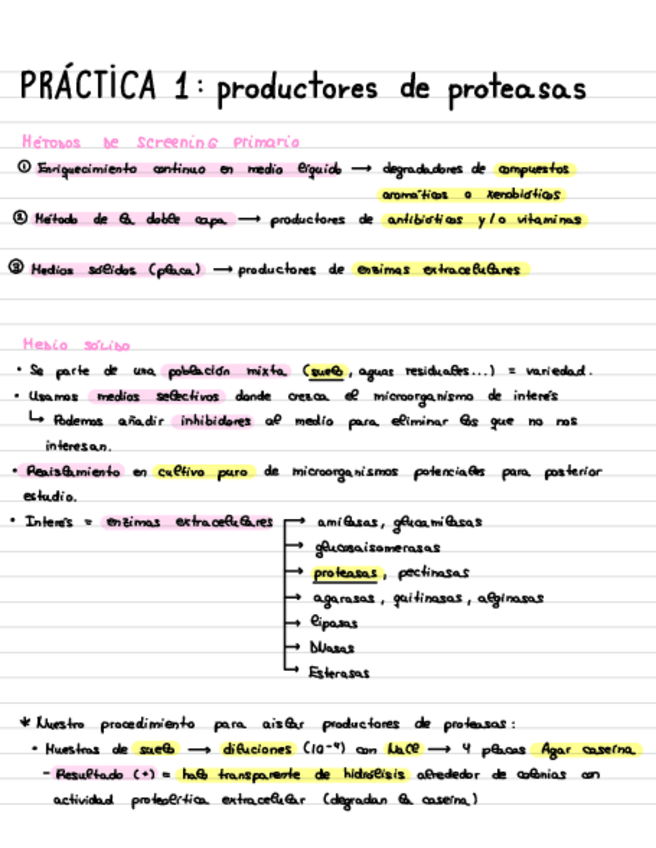 PRÁCTICA 1: productores de proteasas
Métodos de screening primario
① Enriquecimiento continuo en medio líquido → degradadores de compuestos
aromáticos o xenobióticos
② Método de la doble capa → productores de antibióticos y/o vitaminas
③ Medios sólidos (placa) → productores de enzimas extracelulares
Medio sólido
• Se parte de una población mixta (suelo, aguas residuales...) = variedad.
• Usamos medios selectivos donde crezca el microorganismo de interés
↳ Podemos añadir inhibidores al medio para eliminar los que no nos
interesan.
• Reaislamiento en cultivo puro de microorganismos potenciales para posterior
estudio.
• Interés = enzimas extracelulares → amilasas, glucamilasas
→ glucosaisomerasas
→ proteasas, pectinasas
→ agarasas, quitinasas, alginasas
→ lipasas
→ DNasas
→ Esterasas
* Nuestro procedimiento para aislar productores de proteasas:
• Muestras de suelo → diluciones (10⁻⁴) con NaCl → 4 placas Agar caseína
- Resultado (+) = halo transparente de hidrólisis alrededor de colonias con
actividad proteolítica extracelular (degradan la caseína)